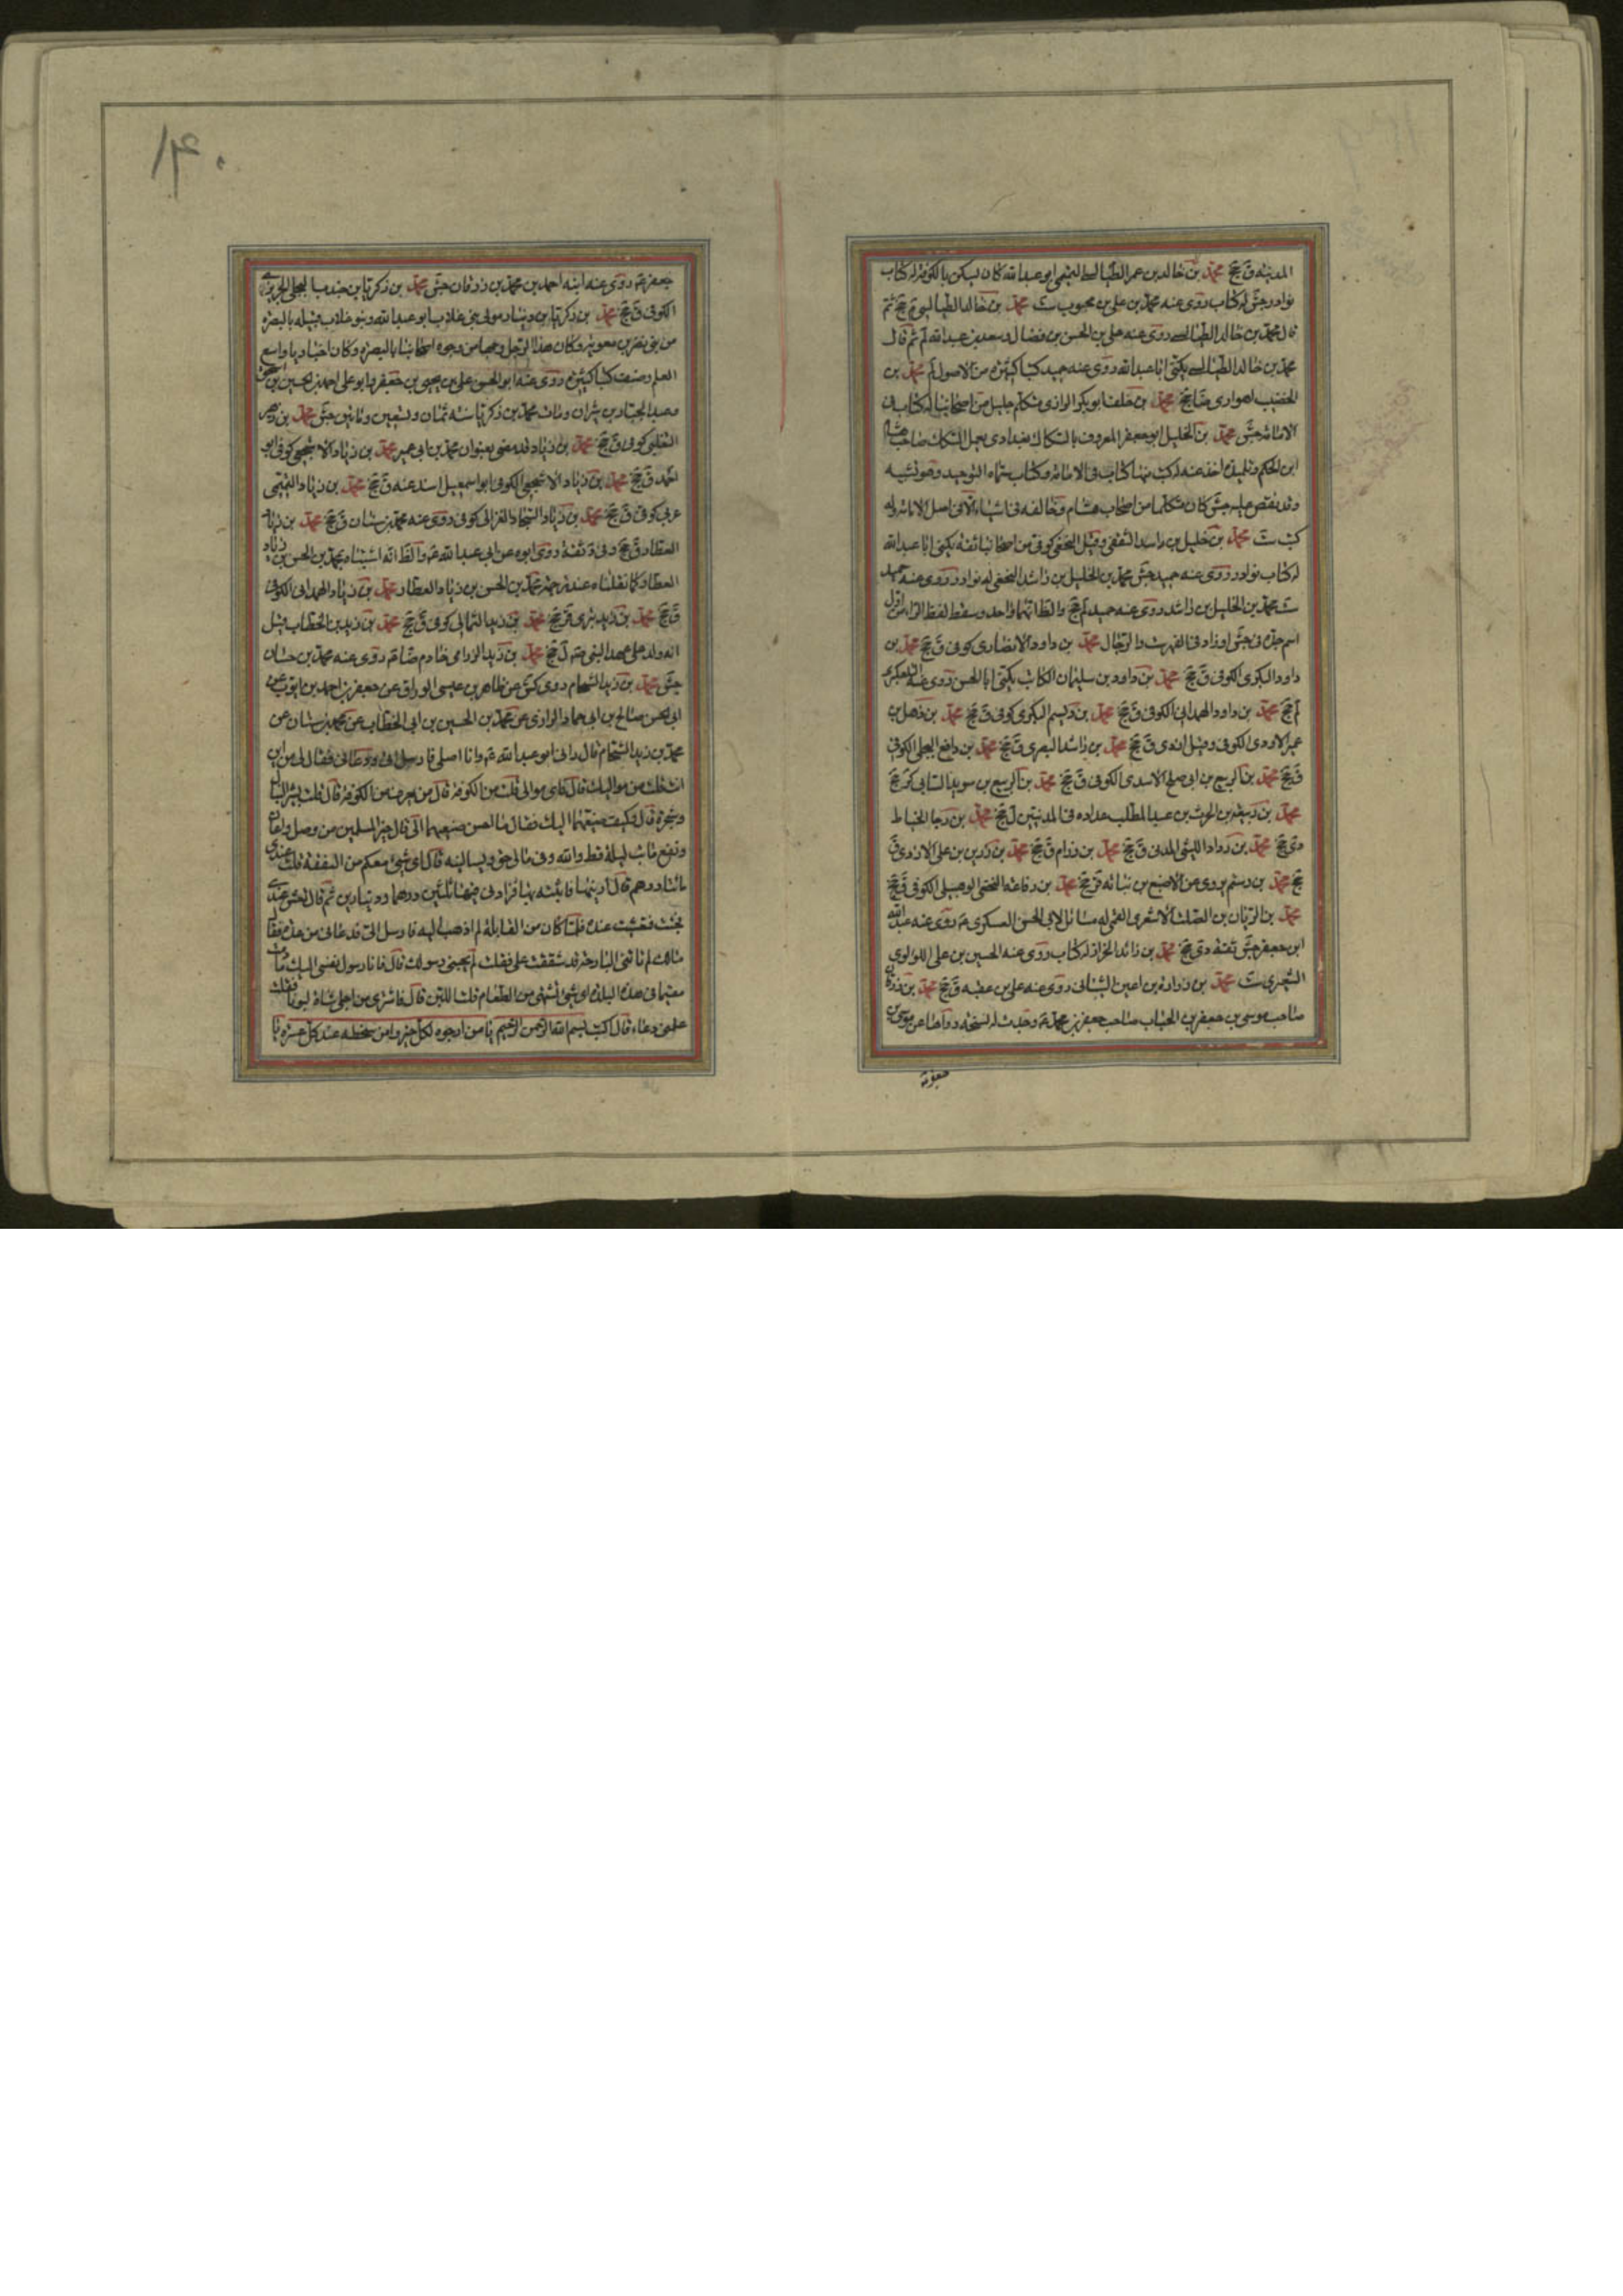 المدينة ق جخ محمد بن خالد بن عمر الطيالسي التميمي ابو عبد الله كان يسكن بالكوفة له كتاب
نوادر جش له كتاب روى عنه محمد بن علي بن محبوب ست محمد بن خالد الطيالسي م جخ ثم
قال محمد بن خالد الطيالسي روى عنه علي بن الحسن بن فضال وسعد بن عبد الله لم ثم قال
محمد بن خالد الطيالسي يكنى ابا عبد الله روى عنه حميد كتبا كثيرة من الاصول لم محمد بن
الخصيب اهوازي ضا جخ محمد بن خلف ابو بكر الرازي متكلم جليل من اصحابنا له كتاب في
الامامة جش محمد بن الخليل ابو جعفر المعروف بالسكاك بغدادي يعمل السكك صاحب هشام
ابن الحكم وتلميذه اخذ عنه له كتب منها كتاب في الامامة وكتاب سماه التوحيد وهو تشبيه
وقد نقض عليه جش كان متكلما من اصحاب هشام وخالفه في اشياء الا في اصل الامامة وله
كتب ست محمد بن خليل بن راشد الثقفي وقيل النخعي كوفي من اصحابنا ثقة يكنى ابا عبد الله
له كتاب نوادر روى عنه حميد جش محمد بن الخليل بن راشد النخعي له نوادر روى عنه حميد
ست محمد بن الخليل بن راشد روى عنه حميد لم جخ والظ انهما واحد وسقط لفظ الراس اول
اسم جده في جش او زاد في الفهرست والرجال محمد بن داود الانصاري كوفي ق جخ محمد بن
داود البكري الكوفي ق جخ محمد بن داود بن سليمان الكاتب يكنى ابا الحسن روى عنه التلعكبري
لم جخ محمد بن داود الهمداني الكوفي ق جخ محمد بن ديسم البكري كوفي ق جخ محمد بن ذهل بن
عمير الاودي الكوفي وقيل ازدي ق جخ محمد بن راشد البصري ق جخ محمد بن رافع البجلي الكوفي
ق جخ محمد بن الربيع بن ابي صلح الاسدي الكوفي ق جخ محمد بن الربيع بن سويد السائي كر جخ
محمد بن ربيعة بن الحرث بن عبد المطلب عداده في المدنيين ل جخ محمد بن رجا الخياط
دي جخ محمد بن رواد الليثي المدني ق جخ محمد بن رزام ق جخ محمد بن رزين بن علي الازدي ق
جخ محمد بن رستم يروي عن الاصبغ بن نباته قر جخ محمد بن رفاعة النخعي الوهبيلي الكوفي ق جخ
محمد بن الريان بن الصلت الاشعري القمي له مسائل لابي الحسن العسكري ع روى عنه عبد الله
ابن جعفر جش ثقة دي جخ محمد بن زائد الخزاز له كتاب روى عنه الحسين بن علي اللؤلؤي
الشعيري ست محمد بن زرارة بن اعين الشيباني روى عنه علي بن عقبه ق جخ محمد بن زرقان
صاحب موسى بن جعفر بن الحباب صاحب جعفر بن محمد ع وحديث له نسخة رواها عن موسى بن
جعفر ع روى عنه ابنه احمد بن محمد بن زرقان جش محمد بن زكريا بن جندب البجلي الجريري
الكوفي ق جخ محمد بن زكريا بن دينار مولى بني غلاب ابو عبد الله وبنو غلاب قبيلة بالبصرة
من بني نصر بن معوية وكان هذا الرجل وجها من وجوه اصحابنا بالبصرة وكان اخباريا واسع
العلم وصنف كتبا كثيرة روى عنه ابو الحسن علي بن يحيى بن جعفر وابو علي احمد بن الحسين بن
وعبد الجبار بن شران ومات محمد بن زكريا سنة ثمان وتسعين ومائتين جش محمد بن زهير
التغلبي كوفي ق جخ محمد بن زياد قد مضى بعنوان محمد بن ابي عمير محمد بن زياد الاشجعي كوفي ابو
احمد ق جخ محمد بن زياد الاشجعي الكوفي ابو اسمعيل اسند عنه ق جخ محمد بن زياد التميمي
عربي كوفي ق جخ محمد بن زياد السجاد الغزالي كوفي روى عنه محمد بن سنان ق جخ محمد بن زياد
العطار ق جخ وفي د ثقة روى ابوه عن ابي عبد الله ع والظ انه اشتباه بمحمد بن الحسن بن زياد
العطار كما نقلناه عند ترجمة محمد بن الحسن بن زياد العطار محمد بن زياد الهمداني الكوفي
ق جخ محمد بن زيد بتري قر جخ محمد بن زيد الثمالي كوفي ق جخ محمد بن زيد بن الخطاب قيل
انه ولد على عهد النبي ص ل جخ محمد بن زيد الرزامي خادم ضا ع روى عنه محمد بن حسان
جش محمد بن زيد الشحام روى كش عن طاهر بن عيسى الوراق عن جعفر بن احمد بن ايوب عن
ابي الحسن صالح بن ابي حماد الرازي عن محمد بن الحسين بن ابي الخطاب عن محمد بن سنان عن
محمد بن زيد الشحام قال رآني ابو عبد الله ع وانا اصلي فارسل الي ودعاني فقال لي من اين
انت قلت من مواليك قال فاي موالي قلت من الكوفة قال من تعرف من الكوفة قال قلت بشير النبال
وشجرة قال وكيف صنيعتهما اليك فقال ما احسن صنيعهما الي قال خير المسلمين من وصل واعان
ونفع ما بت ليلة قط والله وفي مالي حق يسالنيه قال اي شيء معكم من النفقة قلت عندي
مائتا درهم قال ارنيها فاتيته بها فزاد فيها ثلثين درهما ودينارين ثم قال تعش عندي
فجئت فتعشيت عنده فلما كان من القابلة لم اذهب اليه فارسل الي فدعاني من عنده فقال
مالك لم تاتني البارحة قد شفقت علي فقلت لم يجئني رسولك قال فانا رسول نفسي اليك ما دمت
مقيما في هذه البلدة اي شيء تشتهي من الطعام قلت اللبن قال فاشترى من اجلي شاة لبونا فقلت
علمني دعاء قال اكتب بسم الله الرحمن الرحيم يا من ارجوه لكل خير وامن سخطه عند كل عسرة يا